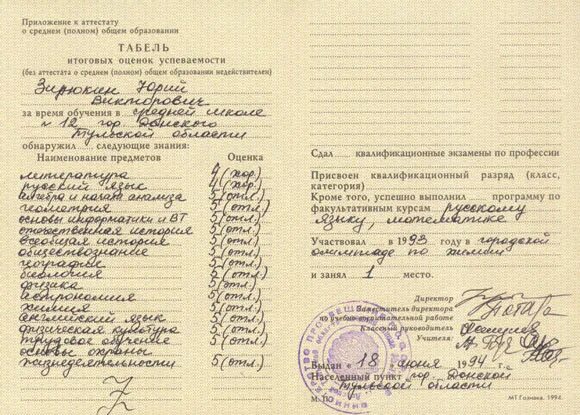 Приложение к аттестату
о среднем (полном) общем образовании
ТАБЕЛЬ
итоговых оценок успеваемости
(без аттестата о среднем (полном) общем образовании недействителен)
Зирюкин Юрий
Викторович
за время обучения в средней школе
№ 12 гор. Донского
Тульской области
обнаружил следующие знания:
Наименование предметов Оценка
литература 4 (хор.)
русский язык 4 (хор.)
алгебра и начала анализа 5 (отл.)
геометрия 5 (отл.)
основы информатики и ВТ 5 (отл.)
отечественная история 5 (отл.)
всеобщая история 5 (отл.)
обществознание 5 (отл.)
география 5 (отл.)
биология 5 (отл.)
физика 5 (отл.)
астрономия 5 (отл.)
химия 5 (отл.)
английский язык 5 (отл.)
физическая культура 5 (отл.)
трудовое обучение 5 (отл.)
основы охраны
жизнедеятельности 5 (отл.)
Z
Сдал квалификационные экзамены по профессии
Присвоен квалификационный разряд (класс,
категория)
Кроме того, успешно выполнил программу по
факультативным курсам русскому
языку, математике
Участвовал в 1993 году в городской
олимпиаде по химии
и занял 1 место.
Директор
Заместитель директора
по учебно-воспитательной работе
Классный руководитель
Учителя:
Выдан « 18 » июня 1994 г.
Населенный пункт гор. Донской
Тульской области
М. ПО
МТ Гознака. 1994.